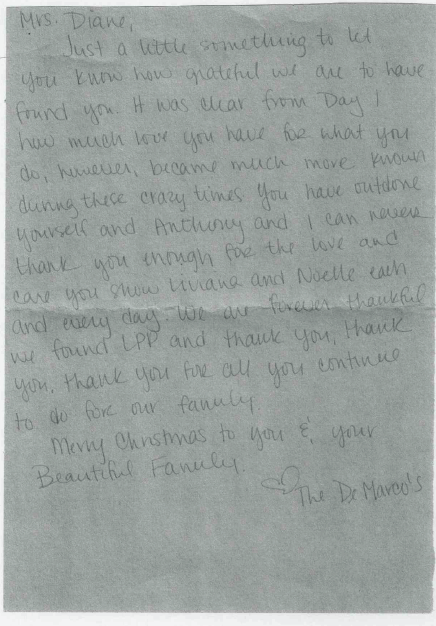 Mrs. Diane,
Just a little something to let
you know how grateful we are to have
found you. It was clear from Day 1
how much love you have for what you
do, however, became much more known
during these crazy times you have outdone
yourself and Anthony and I can never
thank you enough for the love and
care you show Liviana and Noelle each
and every day. We are forever thankful
we found LPP and thank you, thank
you, thank you for all you continue
to do for our family.
Merry Christmas to you & your
Beautiful Family.
The DeMarco's